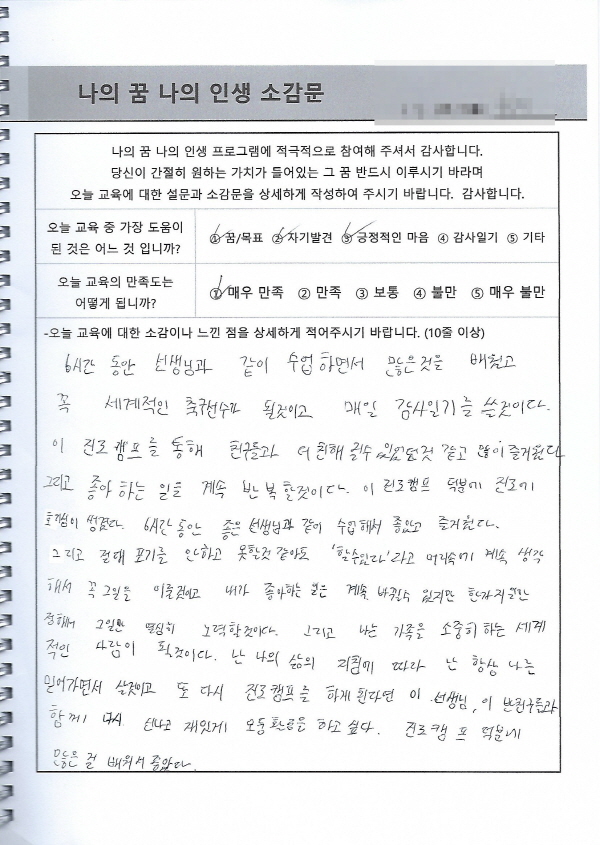 나의 꿈 나의 인생 소감문
나의 꿈 나의 인생 프로그램에 적극적으로 참여해 주셔서 감사합니다.
당신이 간절히 원하는 가치가 들어있는 그 꿈 반드시 이루시기 바라며
오늘 교육에 대한 설문과 소감문을 상세하게 작성하여 주시기 바랍니다. 감사합니다.
오늘 교육 중 가장 도움이
된 것은 어느 것 입니까?
① 꿈/목표 ② 자기발견 ③ 긍정적인 마음 ④ 감사일기 ⑤ 기타
오늘 교육의 만족도는
어떻게 됩니까?
① 매우 만족 ② 만족 ③ 보통 ④ 불만 ⑤ 매우 불만
-오늘 교육에 대한 소감이나 느낀 점을 상세하게 적어주시기 바랍니다. (10줄 이상)
6시간 동안 선생님과 같이 수업하면서 많은것을 배웠고
꼭 세계적인 축구선수가 될것이고 매일 감사일기를 쓸것이다.
이 진로캠프를 통해 친구들과 더 친해 질수 있었던것 같고 많이 즐거웠다
그리고 좋아 하는 일을 계속 반복 할것이다. 이 진로캠프 덕분에 진로에
생겼다. 6시간 동안 좋은 선생님과 같이 수업해서 좋았고 즐거웠다.
그리고 절대 포기를 안하고 못할것 같아도 '할수있다'라고 머리속에 계속 생각
해서 꼭 그일을 이룰것이고 내가 좋아하는 일은 계속 바뀔수 있지만 한가지 일만
정해서 그일만 열심히 노력할것이다. 그리고 나는 가족을 소중히 하는 세계
적인 사람이 될것이다. 난 나의 삶의 지침에 따라 난 항상 나를
믿어가면서 살것이고 또 다시 진로캠프를 하게 된다면 이 선생님, 이 반친구들과
함께 다시 신나고 재밌게 하고 싶다. 진로캠프 덕분에
많은 걸 배워서 좋았다.